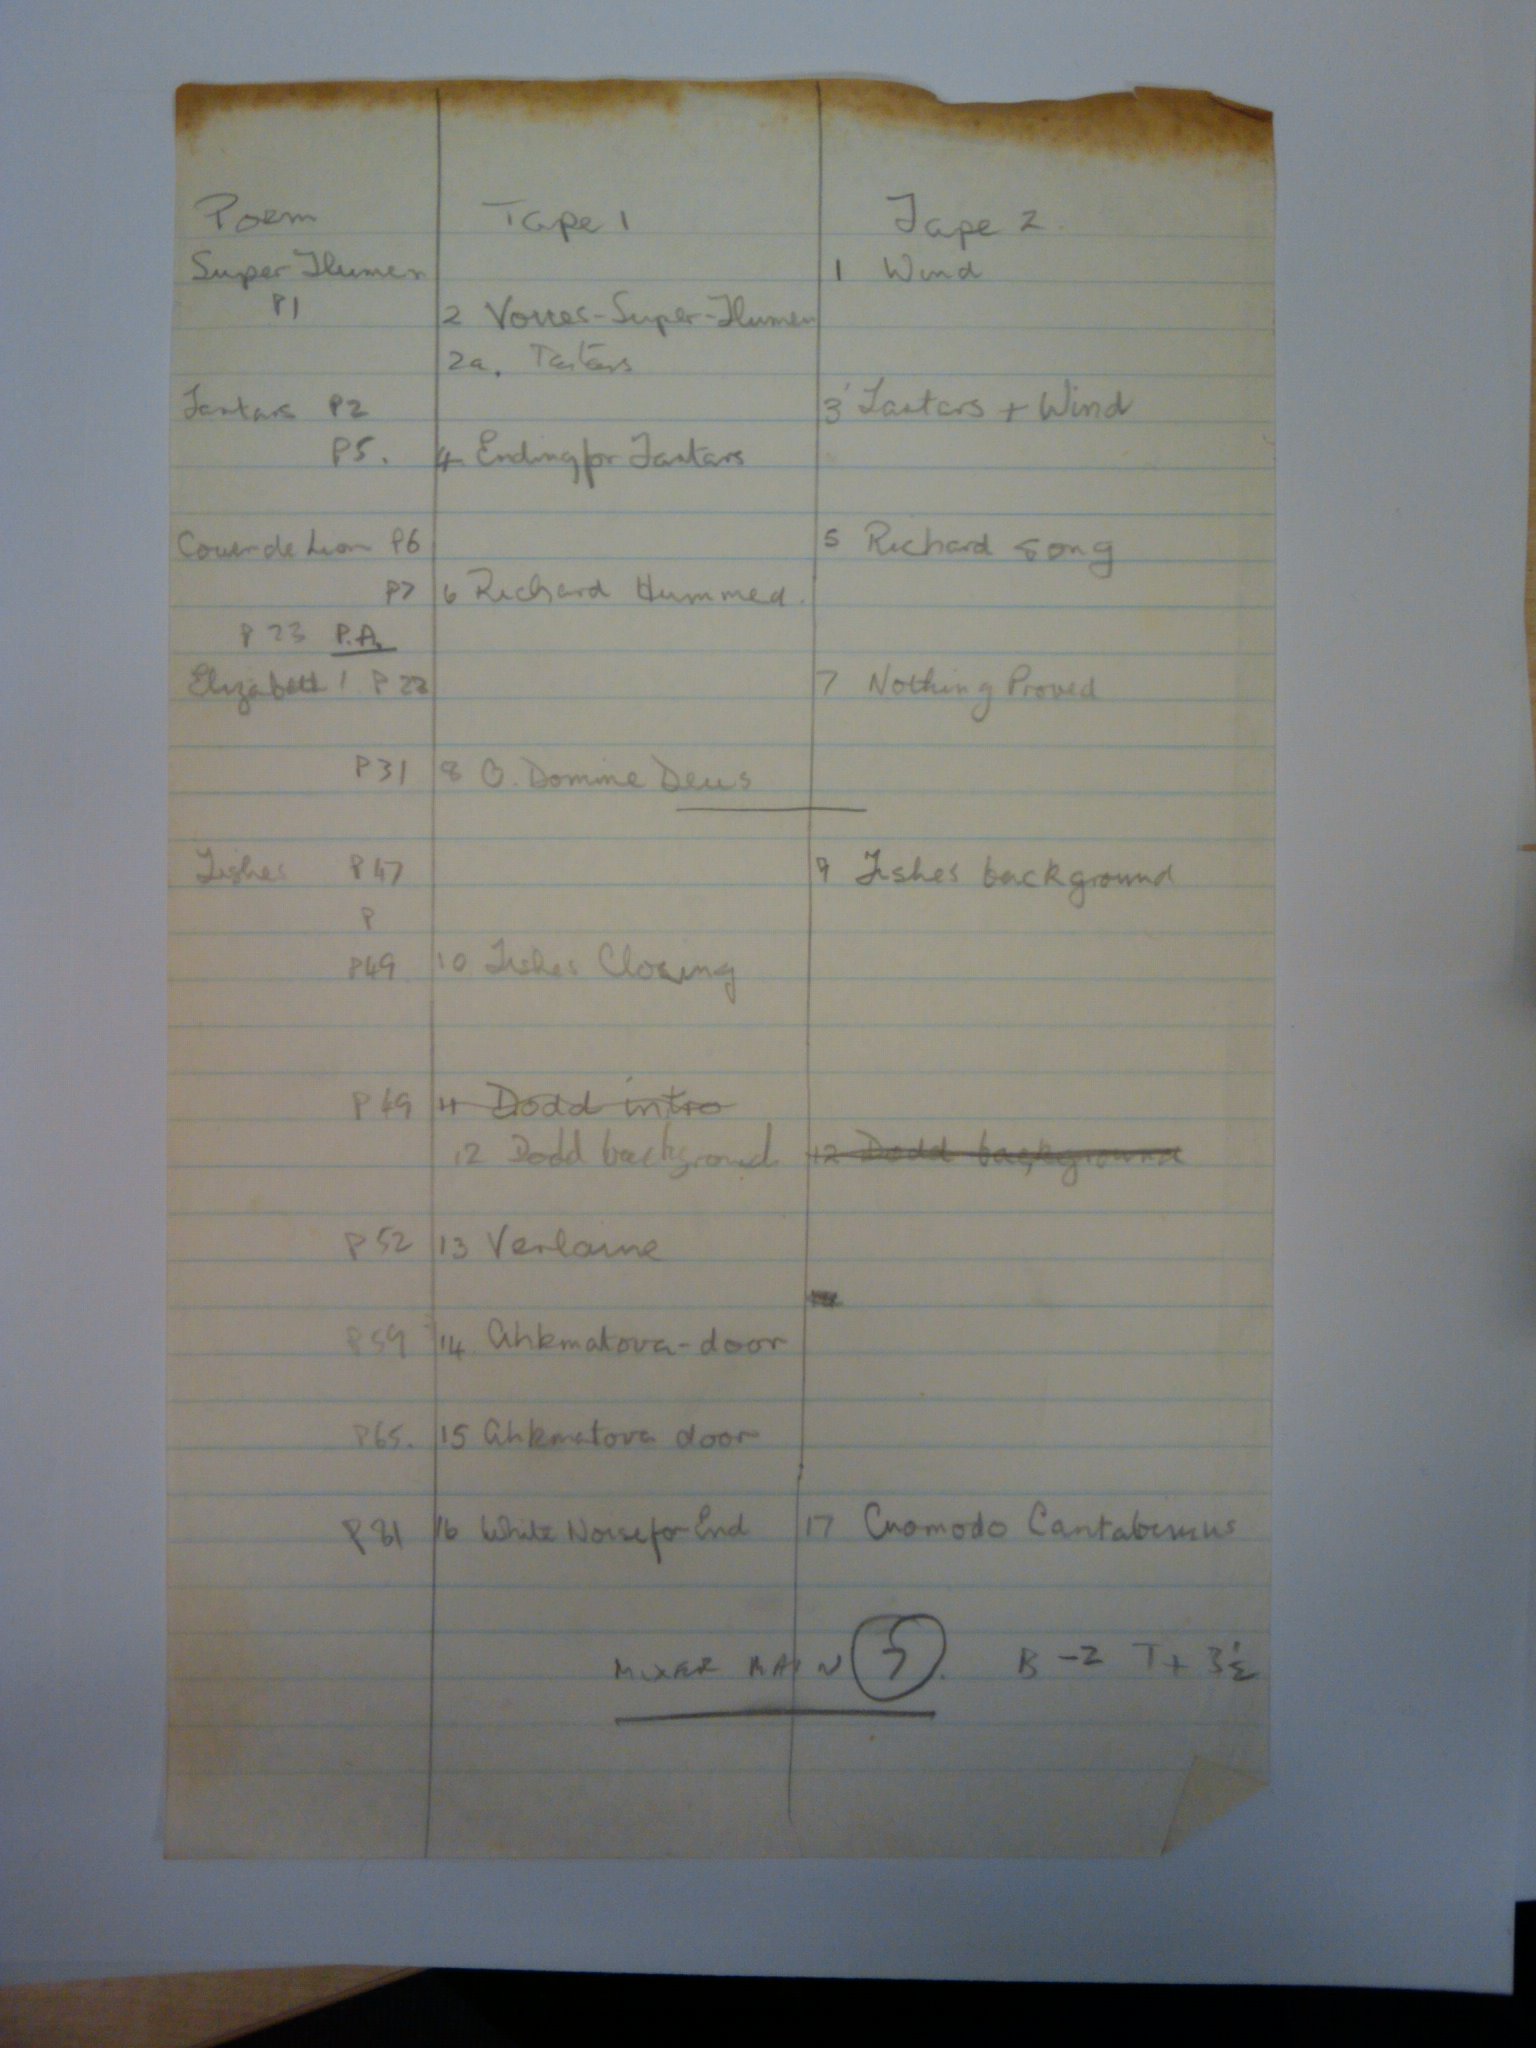 Poem Tape 1 Tape 2
Super Flumen 1 Wind
P1 2 Voices-Super-Flumen
2a. Tartars
Tartars P2 3 Tartars + Wind
P5. 4 Ending for Tartars
Couer de Lion P6 5 Richard song
P7 6 Richard Hummed.
P 23 P.A.
Elizabeth 1 P 23 7 Nothing Proved
P31 8 O. Domine Deus
Fishes P47 9 Fishes background
P
P49 10 Fishes Closing
P49 11 Dodd intro
12 Dodd background 12 Dodd background
P52 13 Verlaine
P59 14. Ahkmatova-door
P65. 15 Ahkmatova door
P81 16 White Noise for End 17 Cuomodo Cantabimus
MIXER MAIN 5. B -2 T + 3½